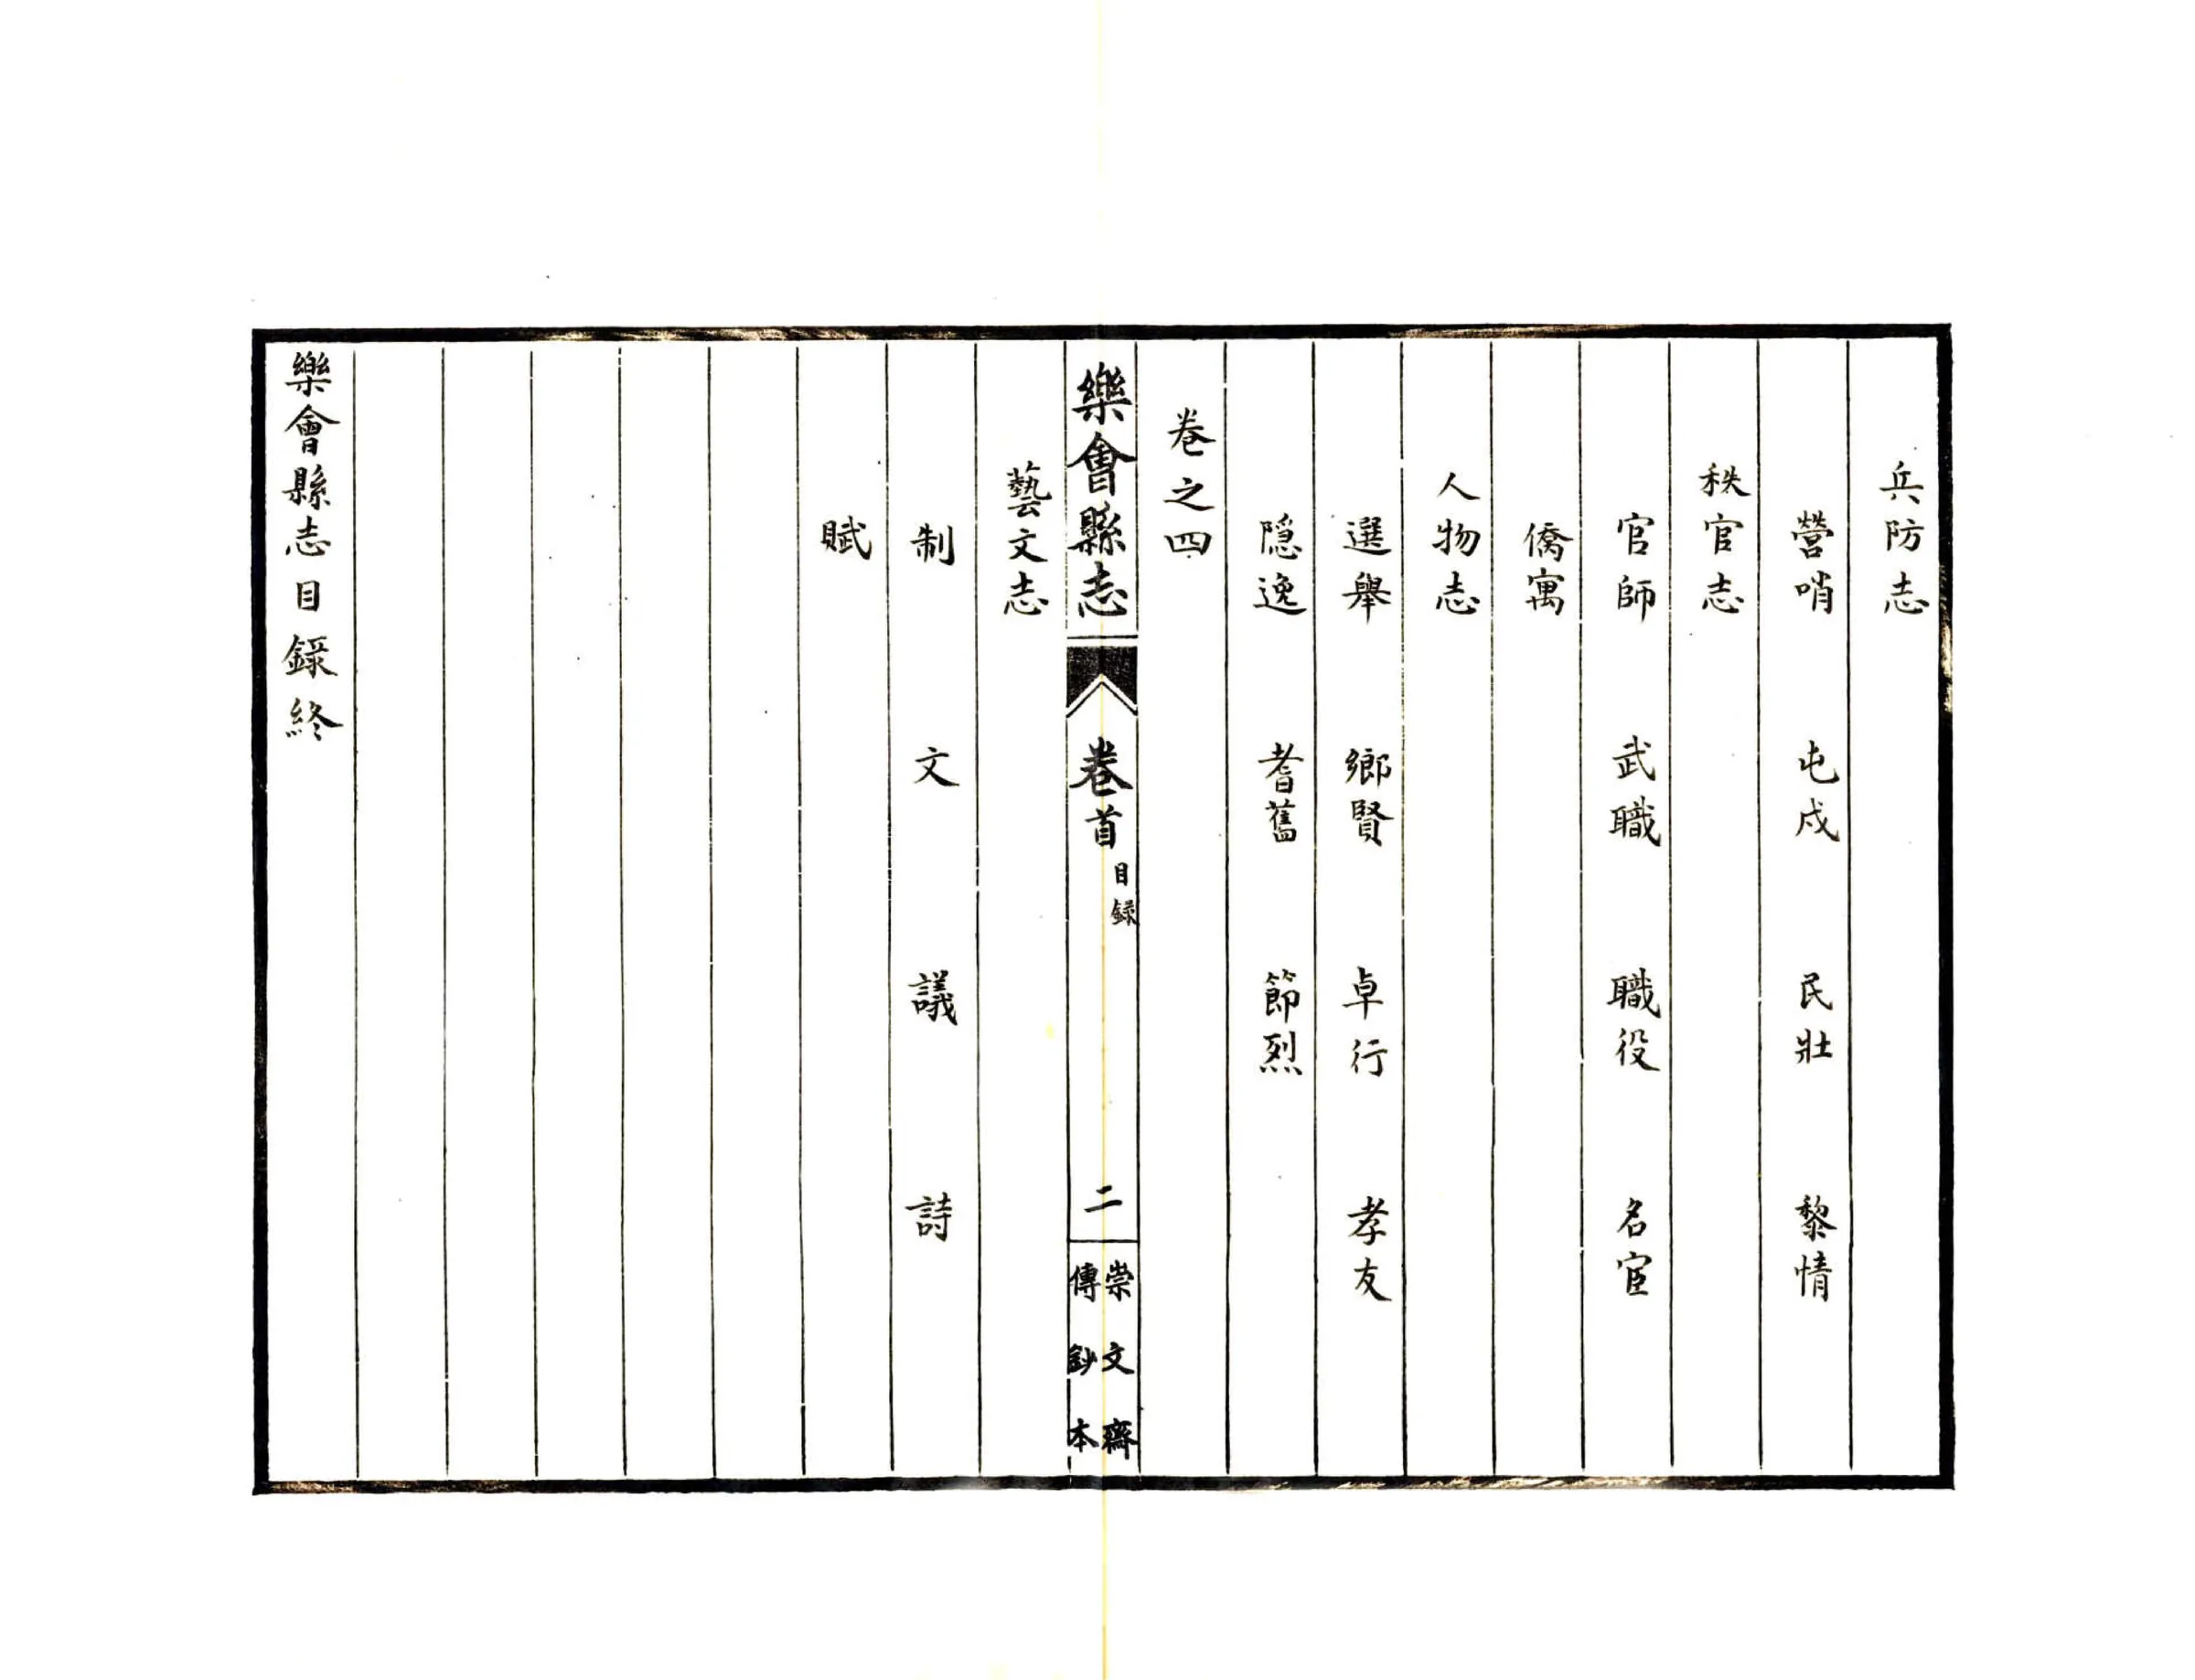 兵防志
營哨 屯戍 民壯 黎情
秩官志
官師 武職 職役 名宦
僑寓
人物志
選舉 鄉賢 卓行 孝友
隱逸 耆舊 節烈
卷之四
樂會縣志 卷首 目録 二 崇文齋傳鈔本
藝文志
制 文 議 詩
賦
樂會縣志目錄終